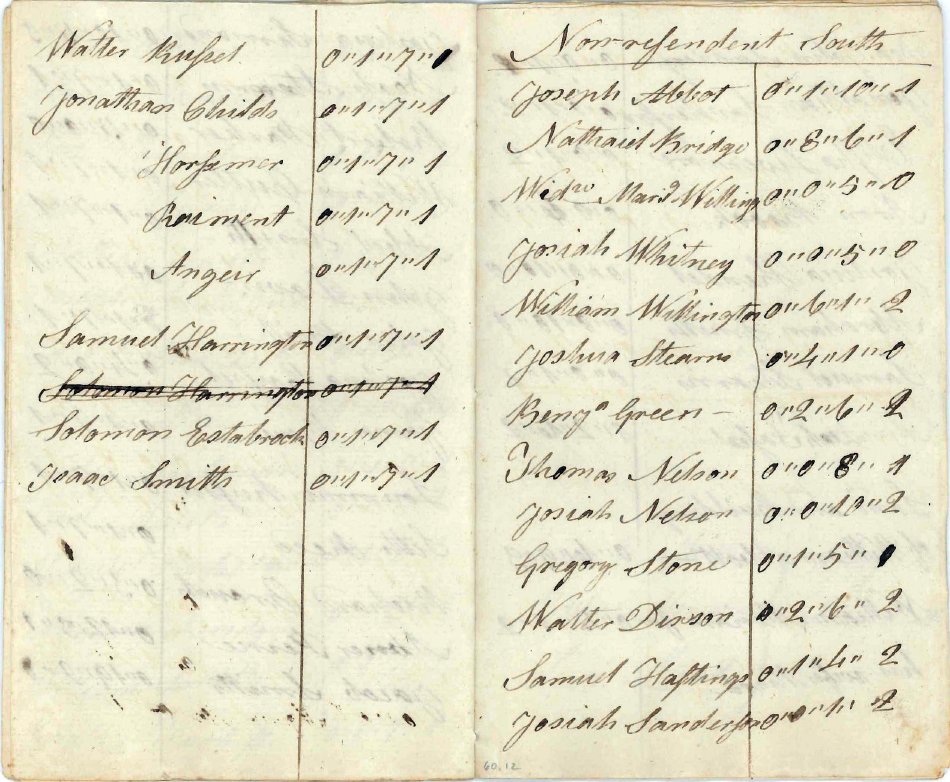 Walter Russel 0"1"7"0
Jonathan Childs 0"1"7"1
Horssmer 0"1"7"1
Raiment 0"1"7"1
Angeir 0"1"7"1
Samuel Harrington 0"1"7"1
Solomon Harrington 0"1"7"1
Solomon Estabrook 0"1"7"1
Isaac Smith 0"1"5"1
Non-resendent South
Joseph Abbot 0"1"10"1
Nathaniel Bridge 0"8"6"1
Widw Mary Willing 0"0"5"0
Josiah Whitney 0"0"5"0
William Willington 0"6"1"2
Joshua Stearns 0"4"1"0
Benja Green - 0"2"6"2
Thomas Nelson 0"0"8"1
Josiah Nelson 0"0"10"2
Gregory Stone 0"1"5"0
Walter Dixson 0"2"6"2
Samuel Hastings 0"1"4"2
Josiah Sanderson 0"0"1"2
60.12